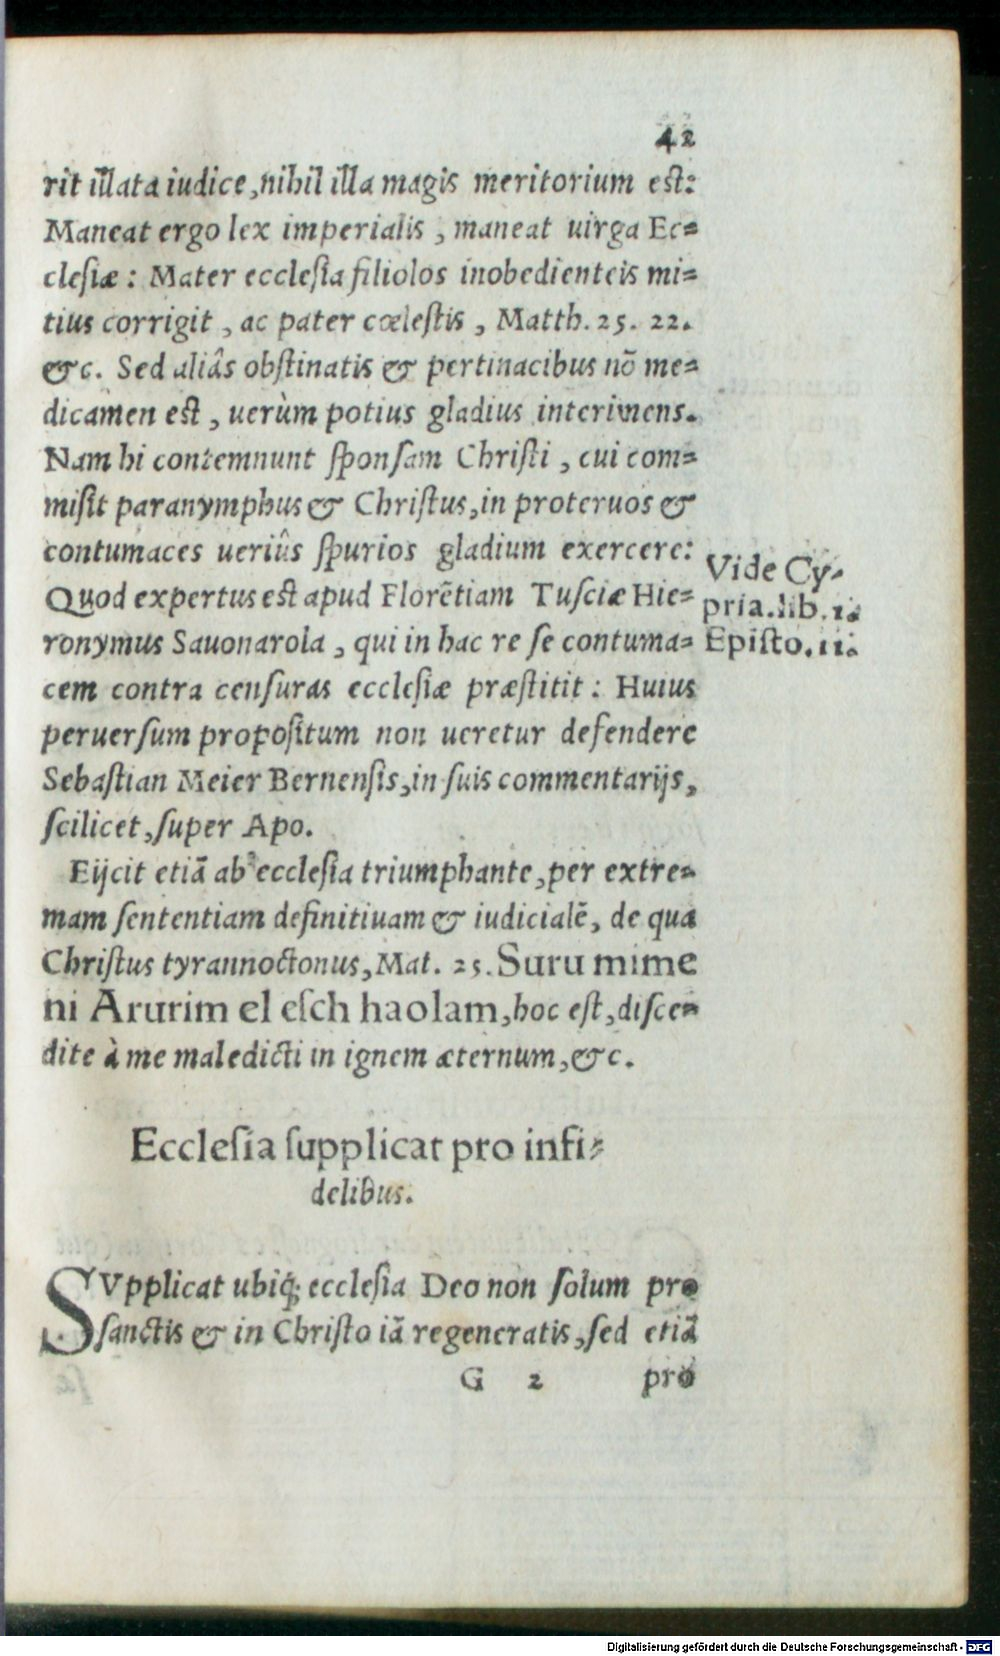 42
rit illata iudice, nihil illa magis meritorium est:
Maneat ergo lex imperialis, maneat uirga Ec=
clesiæ: Mater ecclesia filiolos inobedienteis mi=
tius corrigit, ac pater cœlestis, Matth. 25. 22.
&c. Sed aliâs obstinatis & pertinacibus nõ me=
dicamen est, uerùm potius gladius interimens.
Nam hi contemnunt sponsam Christi, cui com=
misit paranymphus & Christus, in proteruos &
contumaces ueriûs spurios gladium exercere:
Quod expertus est apud Florẽtiam Tusciæ Hie=
ronymus Sauonarola, qui in hac re se contuma=
cem contra censuras ecclesiæ præstitit: Huius
peruersum propositum non ueretur defendere
Sebastian Meier Bernensis, in suis commentarijs,
scilicet, super Apo.
Vide Cy=
pria. lib. 1.
Episto. 11.
Eijcit etiã ab ecclesia triumphante, per extre=
mam sententiam definitiuam & iudicialẽ, de qua
Christus tyrannoctonus, Mat. 25. Suru mime
ni Arurim el esch haolam, hoc est, disce=
dite à me maledicti in ignem æternum, &c.
Ecclesia supplicat pro infi=
delibus.
SVpplicat ubiq; ecclesia Deo non solum pro
sanctis & in Christo iã regeneratis, sed etiã
G 2 pro
Digitalisierung gefördert durch die Deutsche Forschungsgemeinschaft - DFG